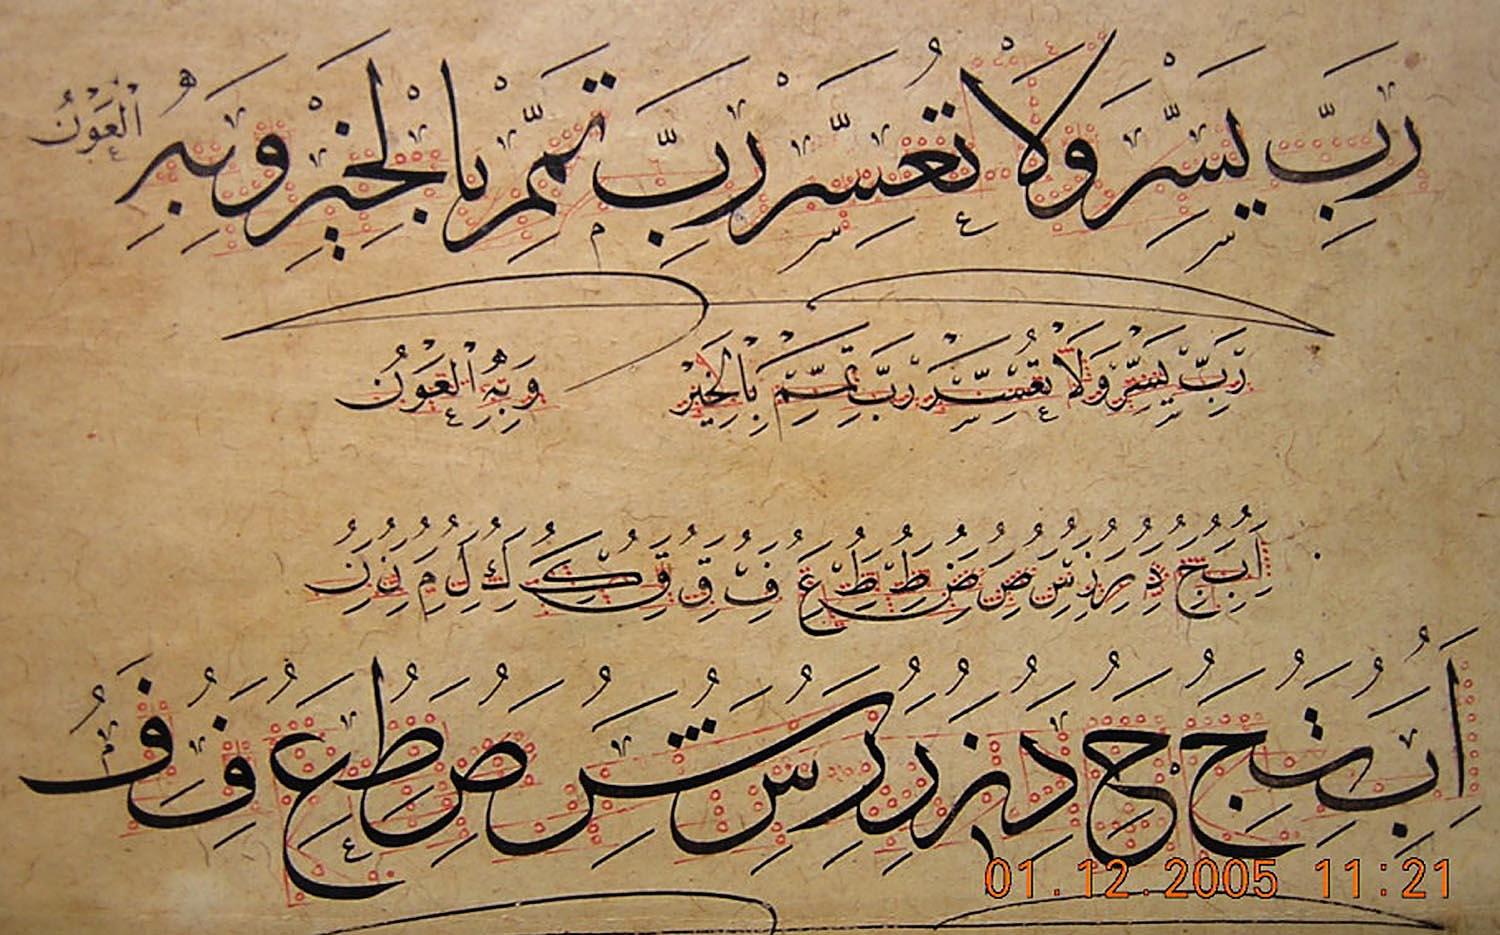 رَبِّ يَسِّرْ وَلَا تُعَسِّرْ رَبِّ تَمِّمْ بِالْخَيْرِ وَبِهِ الْعَوْنُ
رَبِّ يَسِّرْ وَلَا تُعَسِّرْ رَبِّ تَمِّمْ بِالْخَيْرِ وَبِهِ الْعَوْنُ
ا ب ج د ر ز س ص ض ط ظ ع ف ق ق ك ك ل م ن ن
ا ب ت ج ح د ز ر ر س ش ص ط ع ف ف
01.12.2005 11:21